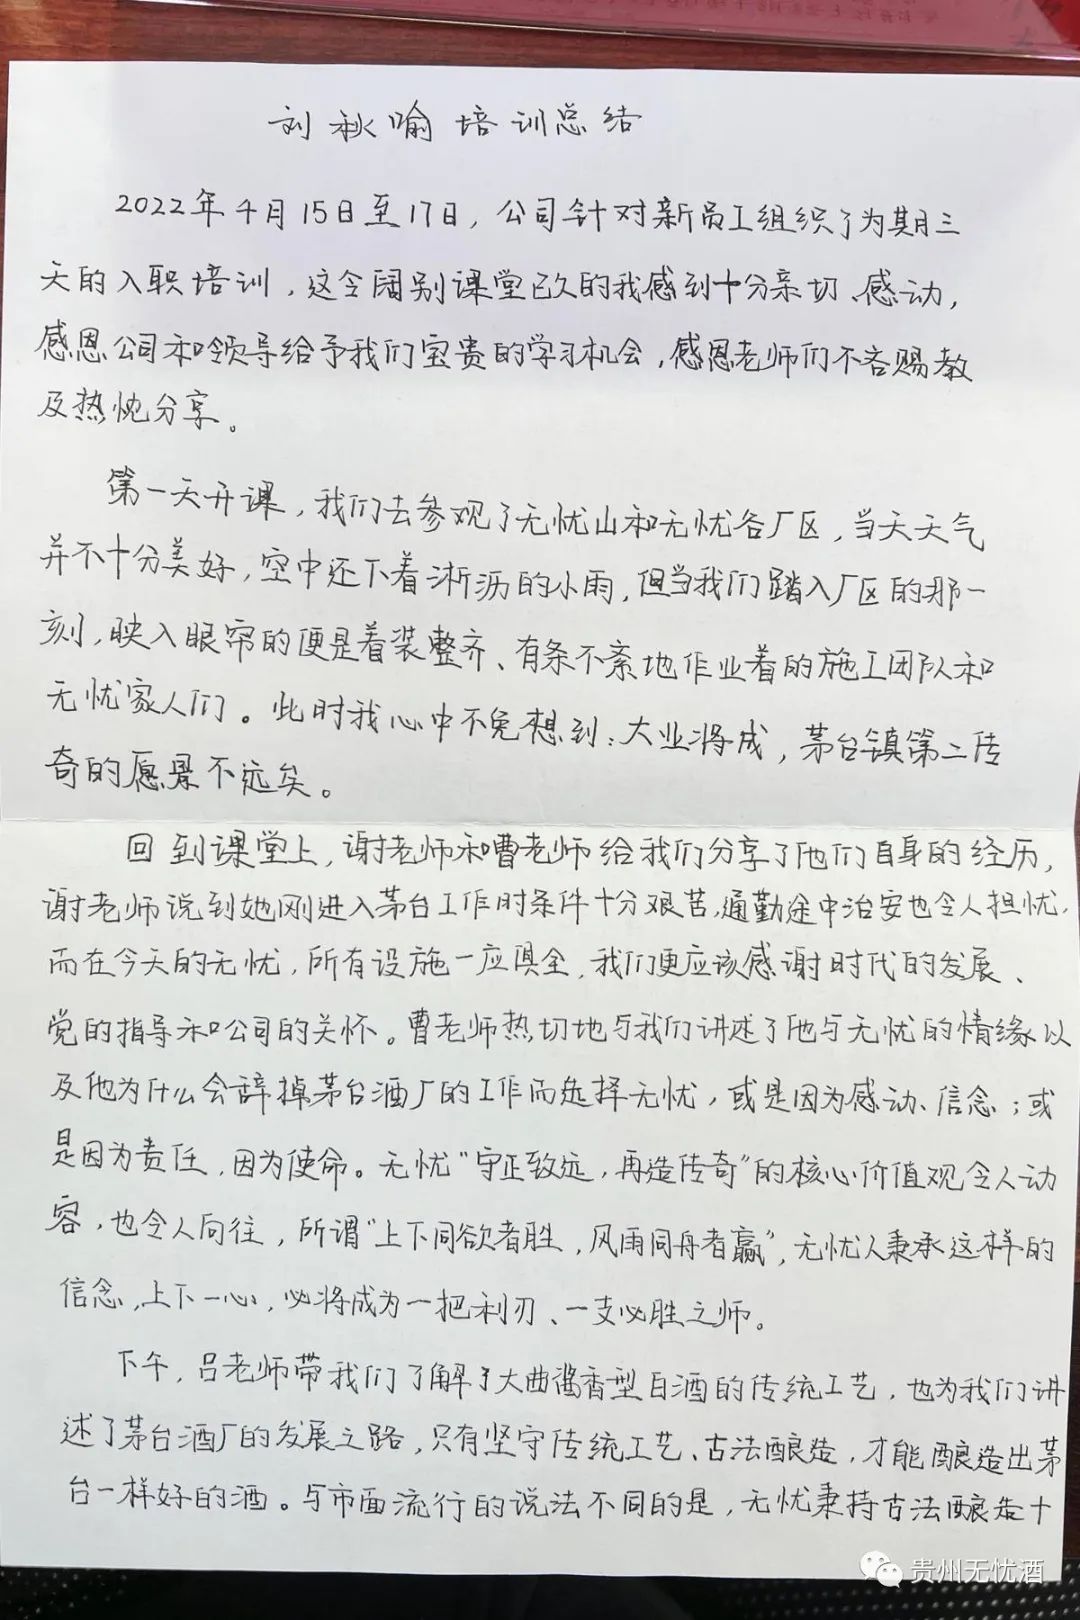 刘秋喻培训总结
2022年4月15日至17日，公司针对新员工组织了为期三
天的入职培训，这令阔别课堂已久的我感到十分亲切、感动，
感恩公司和领导给予我们宝贵的学习机会，感恩老师们不吝赐教
及热忱分享。
第一天开课，我们去参观了无忧山和无忧各厂区，当天天气
并不十分美好，空中还下着淅沥的小雨，但当我们踏入厂区的那一
刻，映入眼帘的便是着装整齐、有条不紊地作业着的施工团队和
无忧家人们。此时我心中不免想到：大业将成，茅台镇第二传
奇的愿景不远矣。
回到课堂上，谢老师和曹老师给我们分享了他们自身的经历，
谢老师说到她刚进入茅台工作时条件十分艰苦，通勤途中治安也令人担忧，
而在今天的无忧，所有设施一应俱全，我们更应该感谢时代的发展、
党的指导和公司的关怀。曹老师热切地与我们讲述了他与无忧的情缘以
及他为什么会辞掉茅台酒厂的工作而选择无忧，或是因为感动、信念；或
是因为责任，因为使命。无忧“守正致远，再造传奇”的核心价值观令人动
容，也令人向往，所谓“上下同欲者胜，风雨同舟者赢”，无忧人秉承这样的
信念，上下一心，必将成为一把利刃、一支必胜之师。
下午，吕老师带我们了解了大曲酱香型白酒的传统工艺，也为我们讲
述了茅台酒厂的发展之路，只有坚守传统工艺、古法酿造，才能酿造出茅
台一样好的酒。与市面流行的说法不同的是，无忧秉持古法酿造十
贵州无忧酒